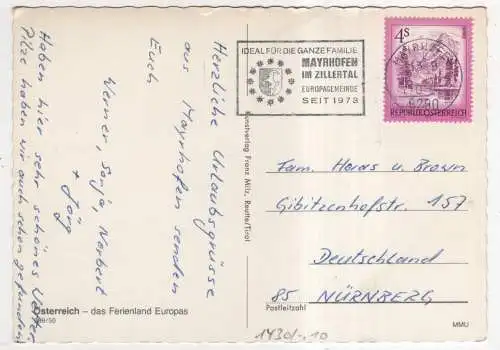 Herzliche Urlaubsgrüsse
aus Mayrhofen senden
Euch
Werner, Sonja, Norbert
+ Jörg
Haben hier sehr schönes Wetter
Pilze haben wir auch schon gefunden
Österreich – das Ferienland Europas
MMU
Kunstverlag Franz Milz, Reutte/Tirol
IDEAL FÜR DIE GANZE FAMILIE
MAYRHOFEN
IM ZILLERTAL
EUROPAGEMEINDE
SEIT 1973
6290
4S
REPUBLIK ÖSTERREICH
Fam. u. Brown
Gibitzenhofstr. 157
Deutschland
85 NÜRNBERG
Postleitzahl